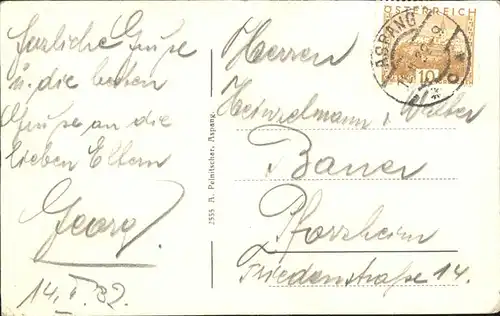 herzliche Grüße
u. die besten
Grüße an die
lieben Eltern
Georg.
14. II. 32.
2555 A. Palnitscher, Aspang.
ÖSTERREICH
10
ASPANG
Herren
Heinzelmann u.
Bauer
Pforzheim
Friedenstraße 14.